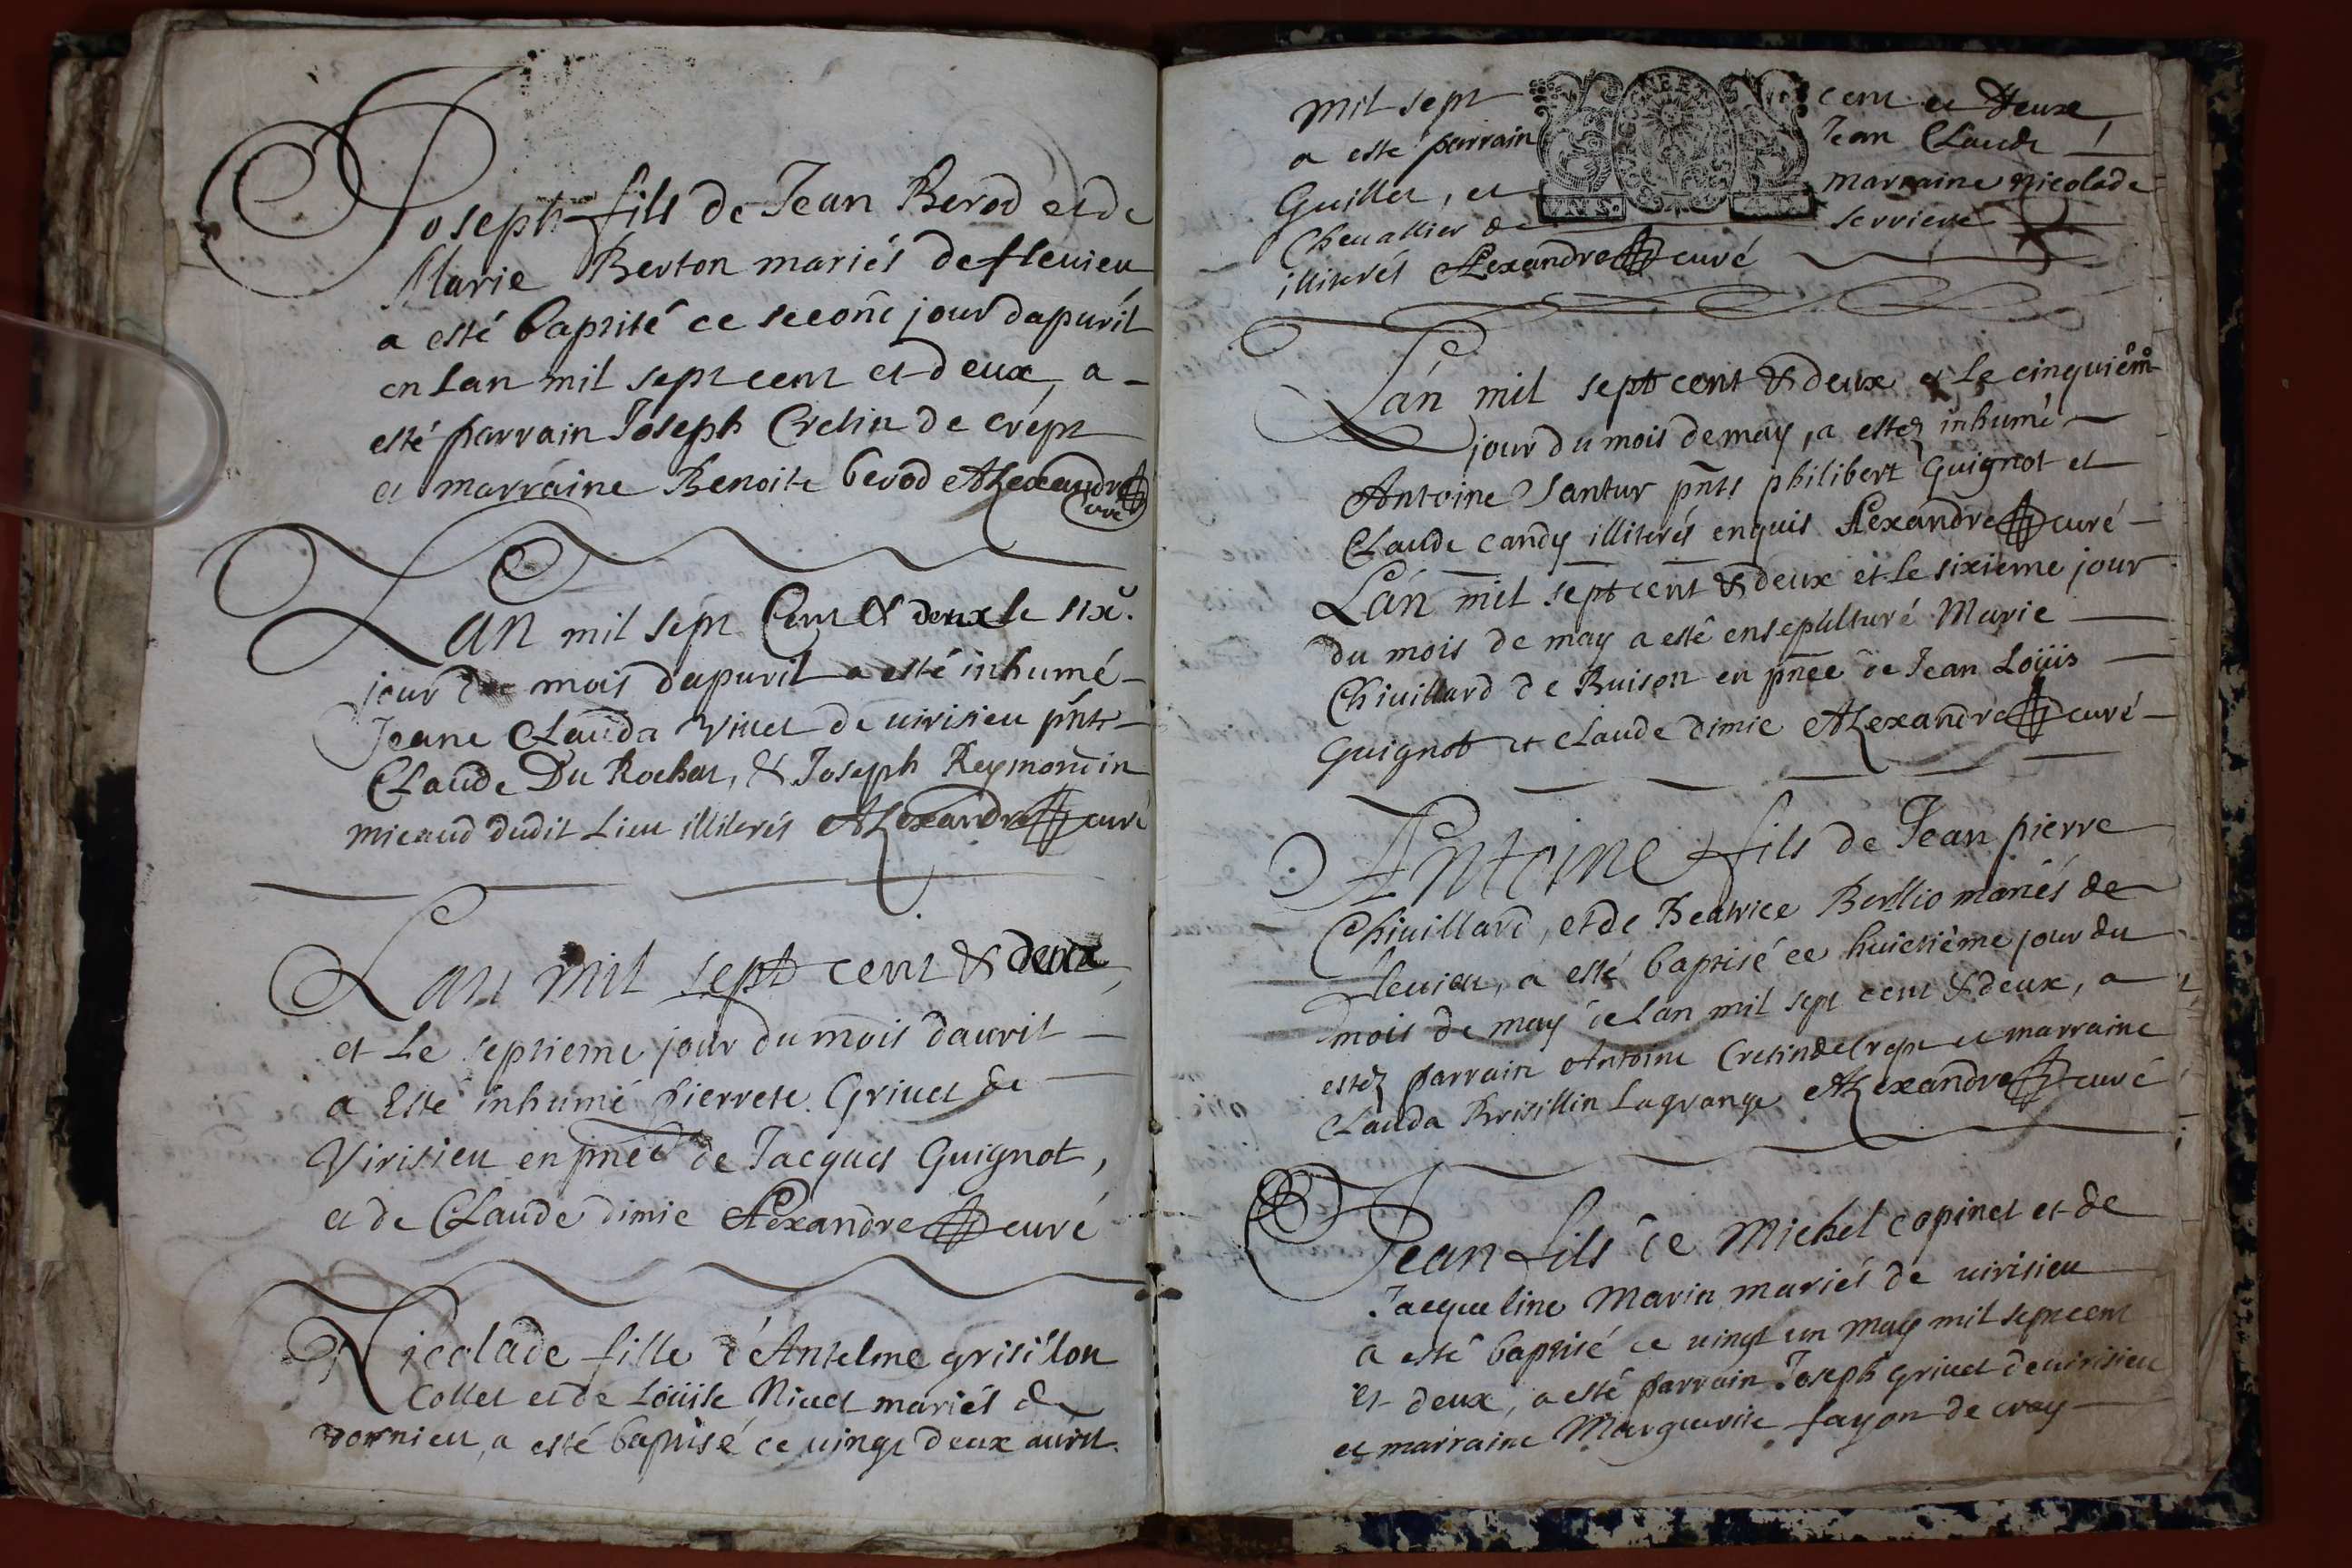 Joseph fils de Jean Berod et de
Marie Berton mariés de fleuieu
a esté baptisé ce second jour dapuril
en Lan mil sept cent et deux, a
esté parrain Joseph Cretin de crept
et marraine Benoite berod Alexandre
curé
Lan mil sept Cent & deux le six.
jour du mois dapuril a esté inhumé
Jeane Clauda Viuet de uirisieu pñts
Claude Du Rochat, & Joseph Reymond in
micaud dudit Lieu illiterés Alexandre curé
Lan mil sept cent & deux,
et Le septieme jour du mois dauril
a Esté inhumé pierrete Griuet de
Virisieu en pñce de Jacques Guignot,
et de Claude dimie Alexandre curé
Nicolade fille d'Antelme grisillon
Collet et de Loüise Niuet mariés de
dornieu, a esté baptisé ce uingt deux auril
mil sept cent et deux,
a este parrain Jean Claude
Guillet, et marraine nicolade
Cheuallier de serriere
illiterés Alexandre curé
Lán mil sept cent & deux et Le cinquiém
jour du mois de may, a estez inhumé
Antoine Santur pñts philibert Guignot et
Claude candy illiterés enquis Alexandre curé
Lán mil sept cent & deux et le sixieme jour
du mois de may a esté ensepulturé Marie
Chiuillard de Buison en pñce de Jean Loüis
Guignot et claude dimie Alexandre curé
Antoine fils de Jean pierre
Chiuillard, et de Beatrice Berllio mariés de
fleuieu, a esté baptisé ce huictième jour du
mois de may de Lan mil sept cent & deux, a
estez parrain Antoine Cretin de Crept et marraine
Clauda Brisillin Lagrange Alexandre curé
Jean fils de Michel copinet et de
Jacqueline Marin mariés de uirisieu
a esté baptisé ce uingt un may mil sept cent
et deux, a esté parrain Joseph griuet de uirisieu
et marraine Marguerite fayon de cray